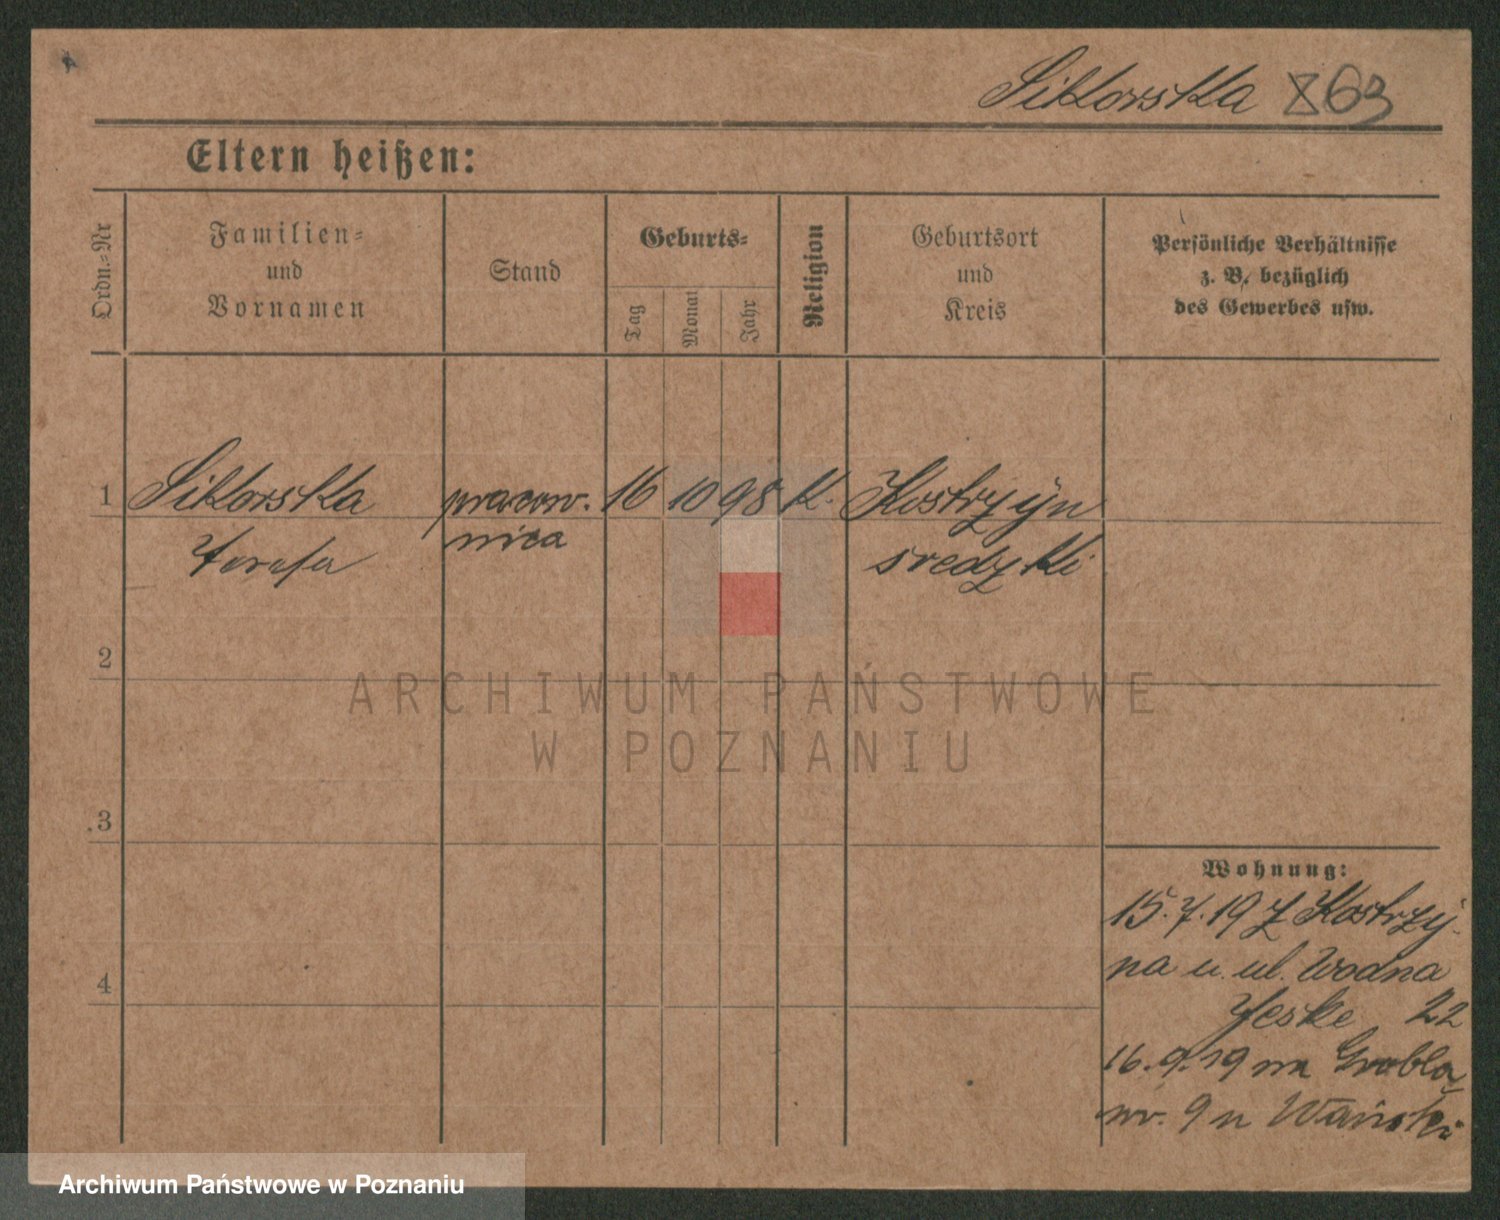 Sikorska 63
Eltern heißen:
Ordn.-Nr
Familien-
und
Vornamen
Stand
Geburts-
Tag
Monat
Jahr
Religion
Geburtsort
und
Kreis
Persönliche Verhältnisse
z. B. bezüglich
des Gewerbes usw.
1 Sikorska pracow. 16 10 98 k. Kostrzyn
Teresa nica sredzki
2
3
4
Wohnung:
15.7.19 z Kostrzy-
na u. ul. Wodna
Jeske 22
16.9.19 na Grobla
nr. 9 u
ARCHIWUM PAŃSTWOWE
W POZNANIU
Archiwum Państwowe w Poznaniu